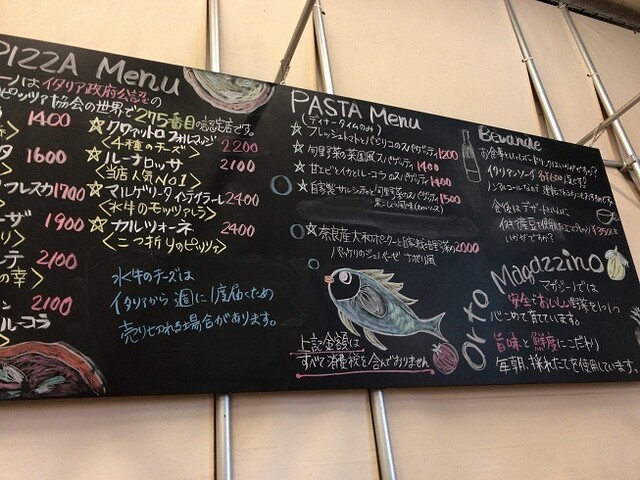 PIZZA Menu
ーノは イタリア政府公認の
ピッツァ協会の世界で275番目の認定店です。
1400
1600
フレスカ 1700
ーザ 1900
ーテ 2100
の幸>
ン 2100
ル・コーラ
☆ クワァットロ フォルマッジ 2200
<4種のチーズ>
☆ ルーナロッサ 2100
<当店人気No1>
☆ マルゲリータ・イティラーレ 2400
<水牛のモッツァレラ>
☆ カルツォーネ 2400
<二つ折りのピッツァ>
水牛のチーズは
イタリアから週に1度届くため
売り切れる場合があります。
PASTA Menu
(ディナータイムのみ)
☆ フレッシュトマトとバジリコのスパゲッティ 1200
☆ 旬野菜の菜園風スパゲッティ 1400
☆ 甘エビとイカとルーコラのスパゲッティ 1400
☆ 自家製サルシッチャと旬野菜のスパゲッティ 1500
黒こしょう風味
☆ 奈良産大和ポークと自家製旬野菜の 2000
パッケリのジェノベーゼ ナポリ風
上記金額は
すべて消費税を含んでおりません
Bevande
お食事といっしょにドリンクはいかがですか?
イタリアンソーダ 各¥600
食後はデザートといっしょに
¥350
いかがですか?
Orto Magazzino
マガジーノでは
安全でおいしい野菜を1つ1つ
心こめて育てています。
旨味と鮮度にこだわり
毎朝、採れたてを使用しています。